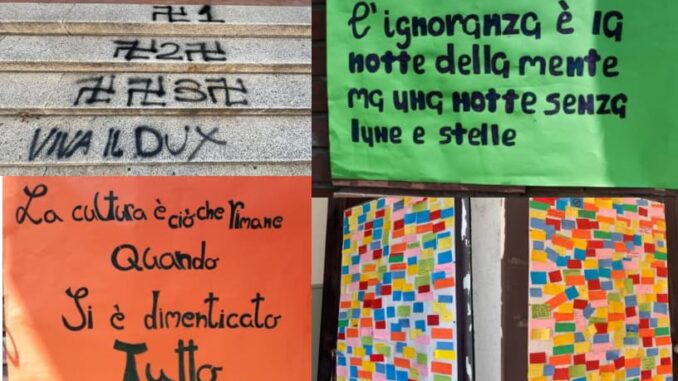 卐 卐 1
卐 2 卐
卐 卐 S 卐
VIVA IL DUX
l'ignoranza è la
notte della mente
ma una notte senza
lune e stelle
La cultura è ciò che rimane
Quando
Si è dimenticato
Tutto